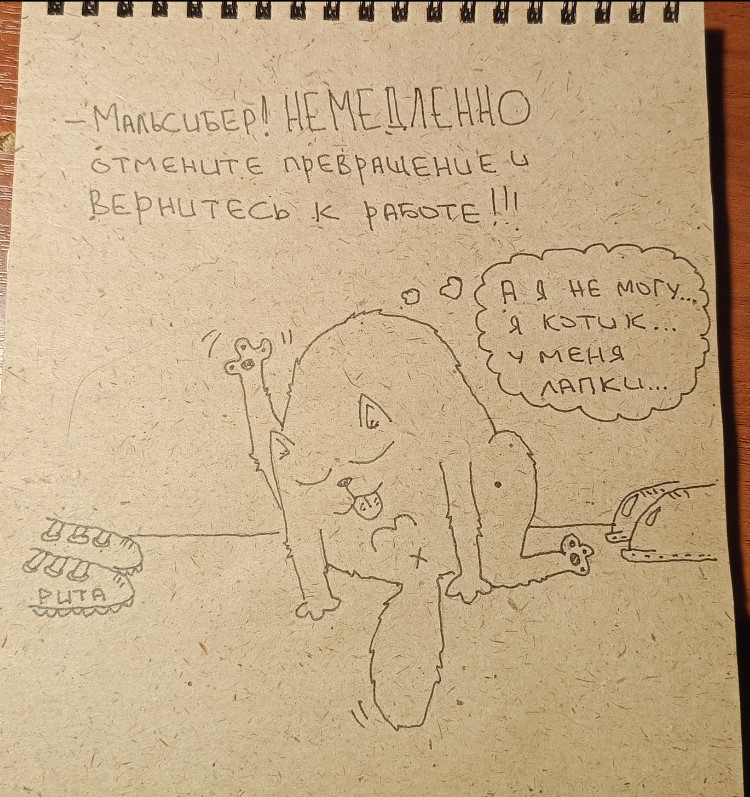 – Мальсибер! НЕМЕДЛЕННО
отмените превращение и
вернитесь к работе!!!
А я не могу...
Я котик...
У меня
лапки...
РИТА